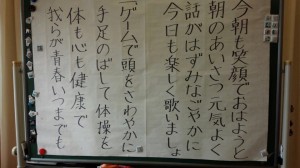 今朝も笑顔でおはようと
朝のあいさつ元気よく
話がはずみなごやかに
今日も楽しく歌いましょ
「ゲームで頭をさわやかに
手足のばして体操を
体も心も健康で
我らが青春いつまでも